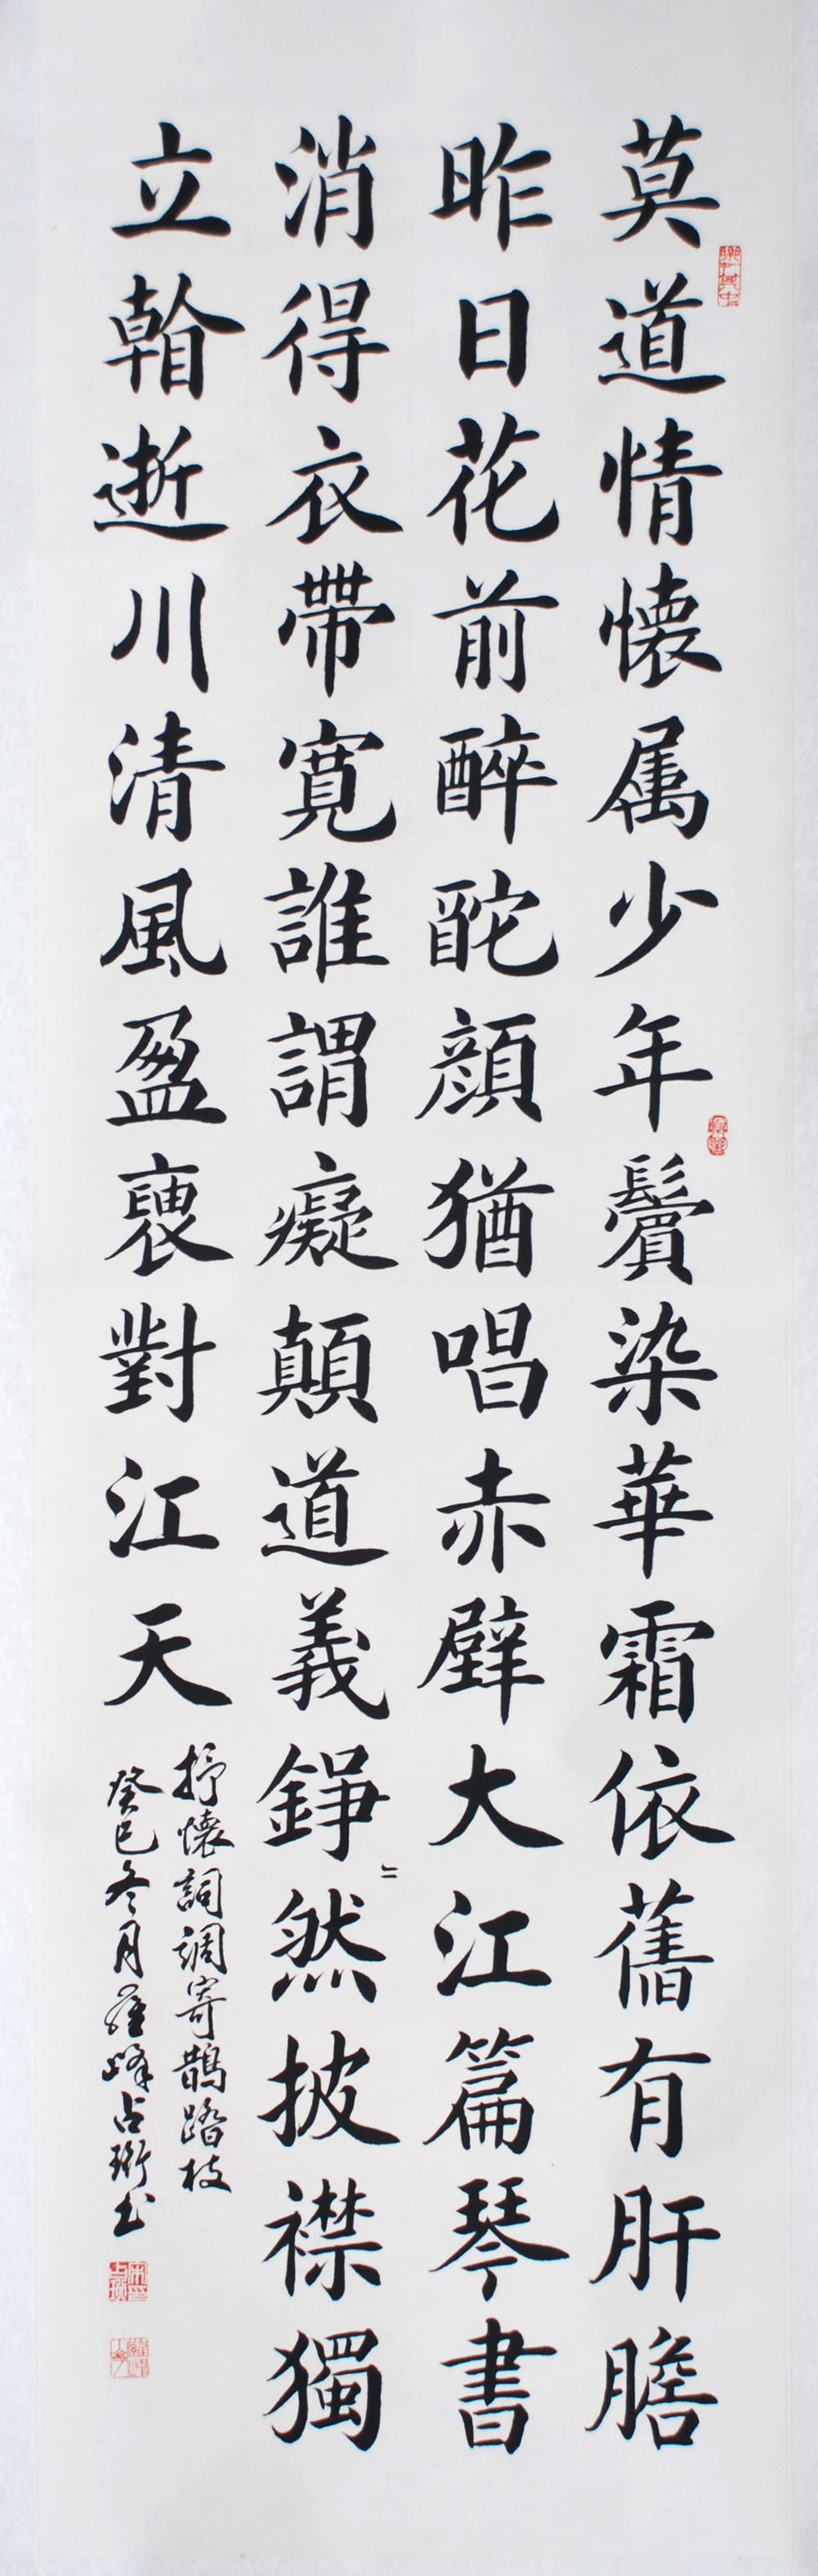 莫道情懷属少年鬢染華霜依舊有肝膽
昨日花前醉酡顔猶唱赤壁大江篇琴書
消得衣帶寛誰謂癡顛道義錚〻然披襟獨
立看逝川清風盈褏對江天
抒懷詞調寄鵲踏枝
癸巳冬月峰占珩書